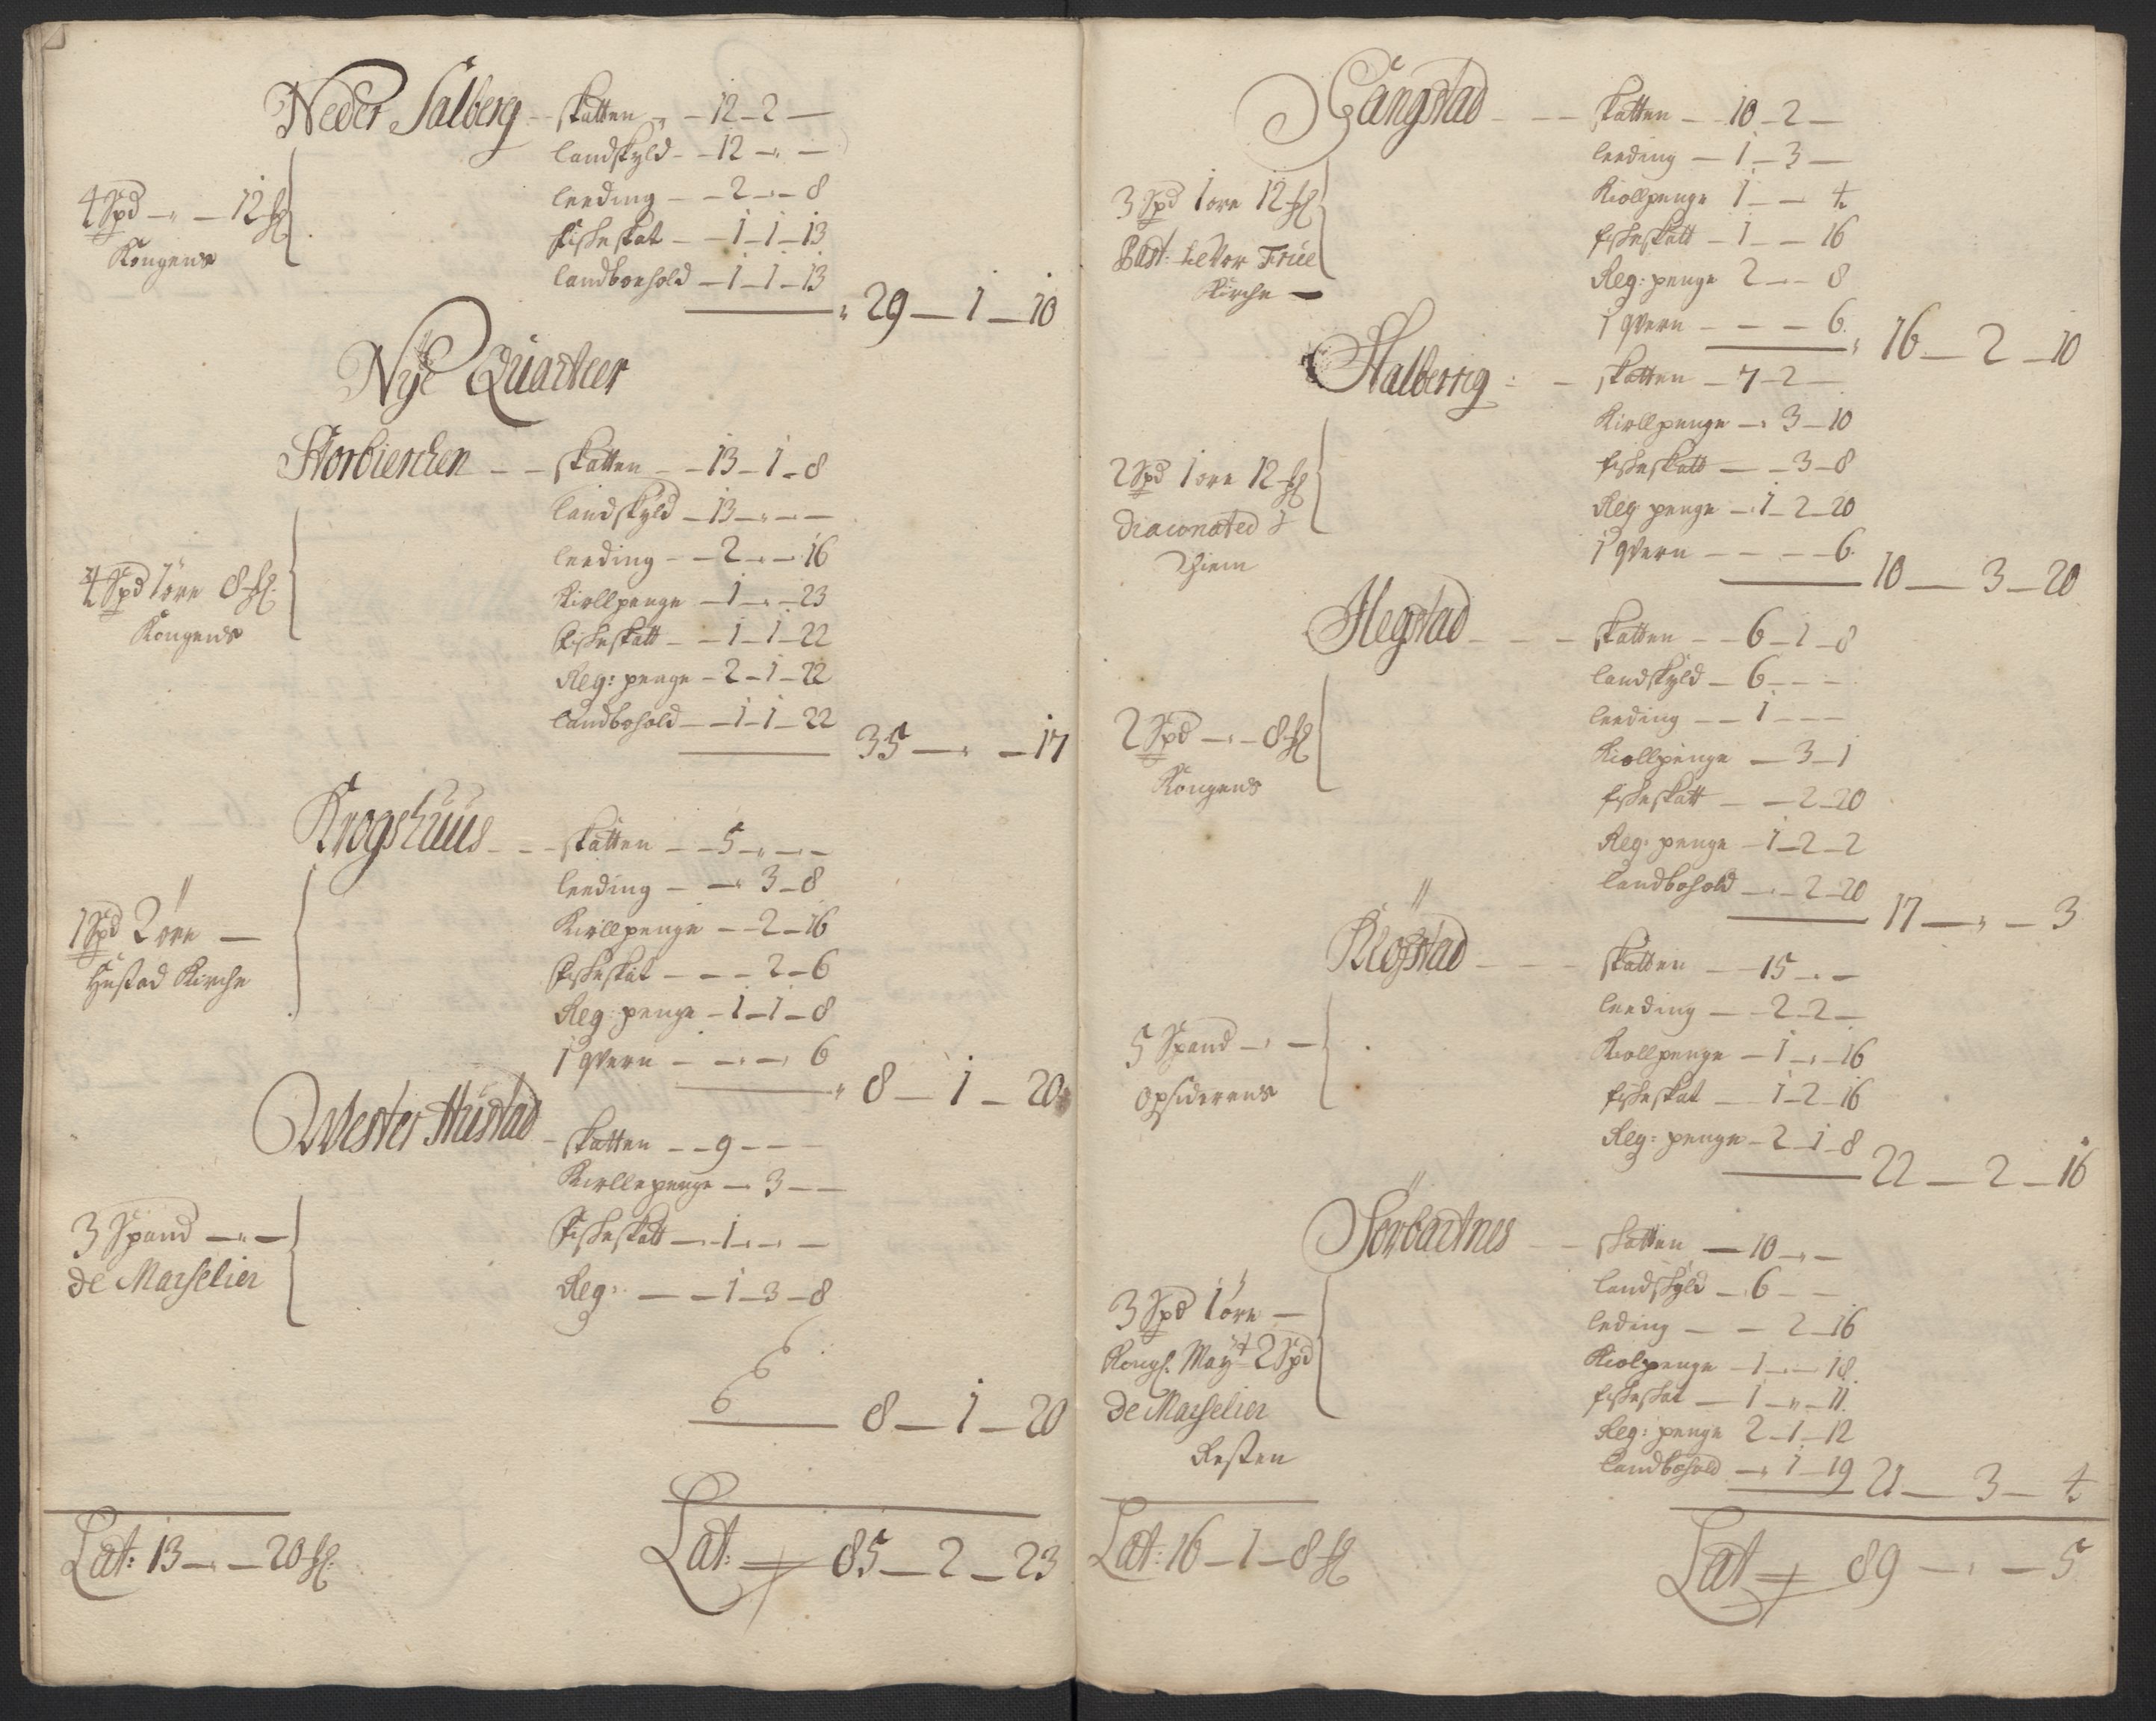 Neder Salberg - - skatten - - 12 - 2 -
landskyld - - 12 - " -
leeding - - 2 - " - 8
fiskeskat - - 1 - 1 - 13
landboehold - 1 - 1 - 13
4 Spd - " - 12 sk
Kongens
" 29 - 1 - 10
Nye Quarteer
- - skatten - - 13 - 1 - 8
landskyld - 13 - " - -
leeding - - 2 - " - 16
Kiollpenge - 1 - " - 23
fiskeskatt - - 1 - 1 - 22
Reg: penge - 2 - 1 - 22
landbohold - - 1 - 1 - 22
4 Spd 1 øre 8 sk
Kongens
35 - " - 17
Krogshuus - - - skatten - - 5 - " - -
leeding - - " 3 - 8
Kiollpenge - - 2 - 16
fiskeskat - - - 2 - 6
Reg: penge - 1 - 1 - 8
1 qvern - - " - 6
1 Spd 2 øre -
Hustad Kirche
" 8 - 1 - 20
Wester Hustad - skatten - - 9 - - -
Kiollepenge - 3 - -
fiskeskatt - 1 - " - -
Reg: - - 1 - 3 - 8
3 Spand - " -
de Marselier
6 6 6
8 - 1 - 20
Lat: 13 - " - 20 sk
Lat: 85 - 2 - 23
Gangstad - - - skatten - - 10 - 2 -
leeding - 1 - 3 -
Kiollpenge 1 - - 4
fiskeskatt - 1 - - 16
Reg: penge 2 - - 8
1 qvern - - - 6
3 Spd 1 øre 12 sk
Past: til Vor Frue
Kirche -
" 16 - 2 - 10
Halberrig - - skatten - 7 - 2 -
Kiollpenge - " 3 - 10
fiskeskatt - - 3 - 8
Reg penge - 1 - 2 - 20
1 qvern - - - - 6
2 Spd 1 øre 12 sk
Diaconated i
Thiem
10 - 3 - 20
Hegstad - - - skatten - - 6 - 1 - 8
landskyld - 6 - - -
leeding - - 1 - - -
Kiollpenge - 3 - 1
fiskeskatt - - 2 - 20
Reg: penge - 1 - 2 - 2
landbohold - " - 2 - 20
2 Spd - " - 8 sk
Kongens
17 - " - 3
Kløfstad - - - skatten - - 15 - " -
leeding - - 2 - 2 -
Kiollpenge - 1 - " - 16
fiskeskat - 1 - 2 - 16
Reg: penge - 2 - 1 - 8
5 Spand - " -
Opsiderens
22 - 2 - 16
- - skatten - 10 - " -
landskyld - 6 - -
leding - - 2 - 16
Kiolpenge - 1 - " - 18
fiskeskat - 1 - " - 11
Reg: penge 2 - 1 - 12
landbohold - " 1 - 19
3 Spd 1 øre -
Kongl. Mayt 2 Spd
de Marselier
Resten
21 - 3 - 4
Lat: 16 - 1 - 8 sk
Lat 89 - " - 5